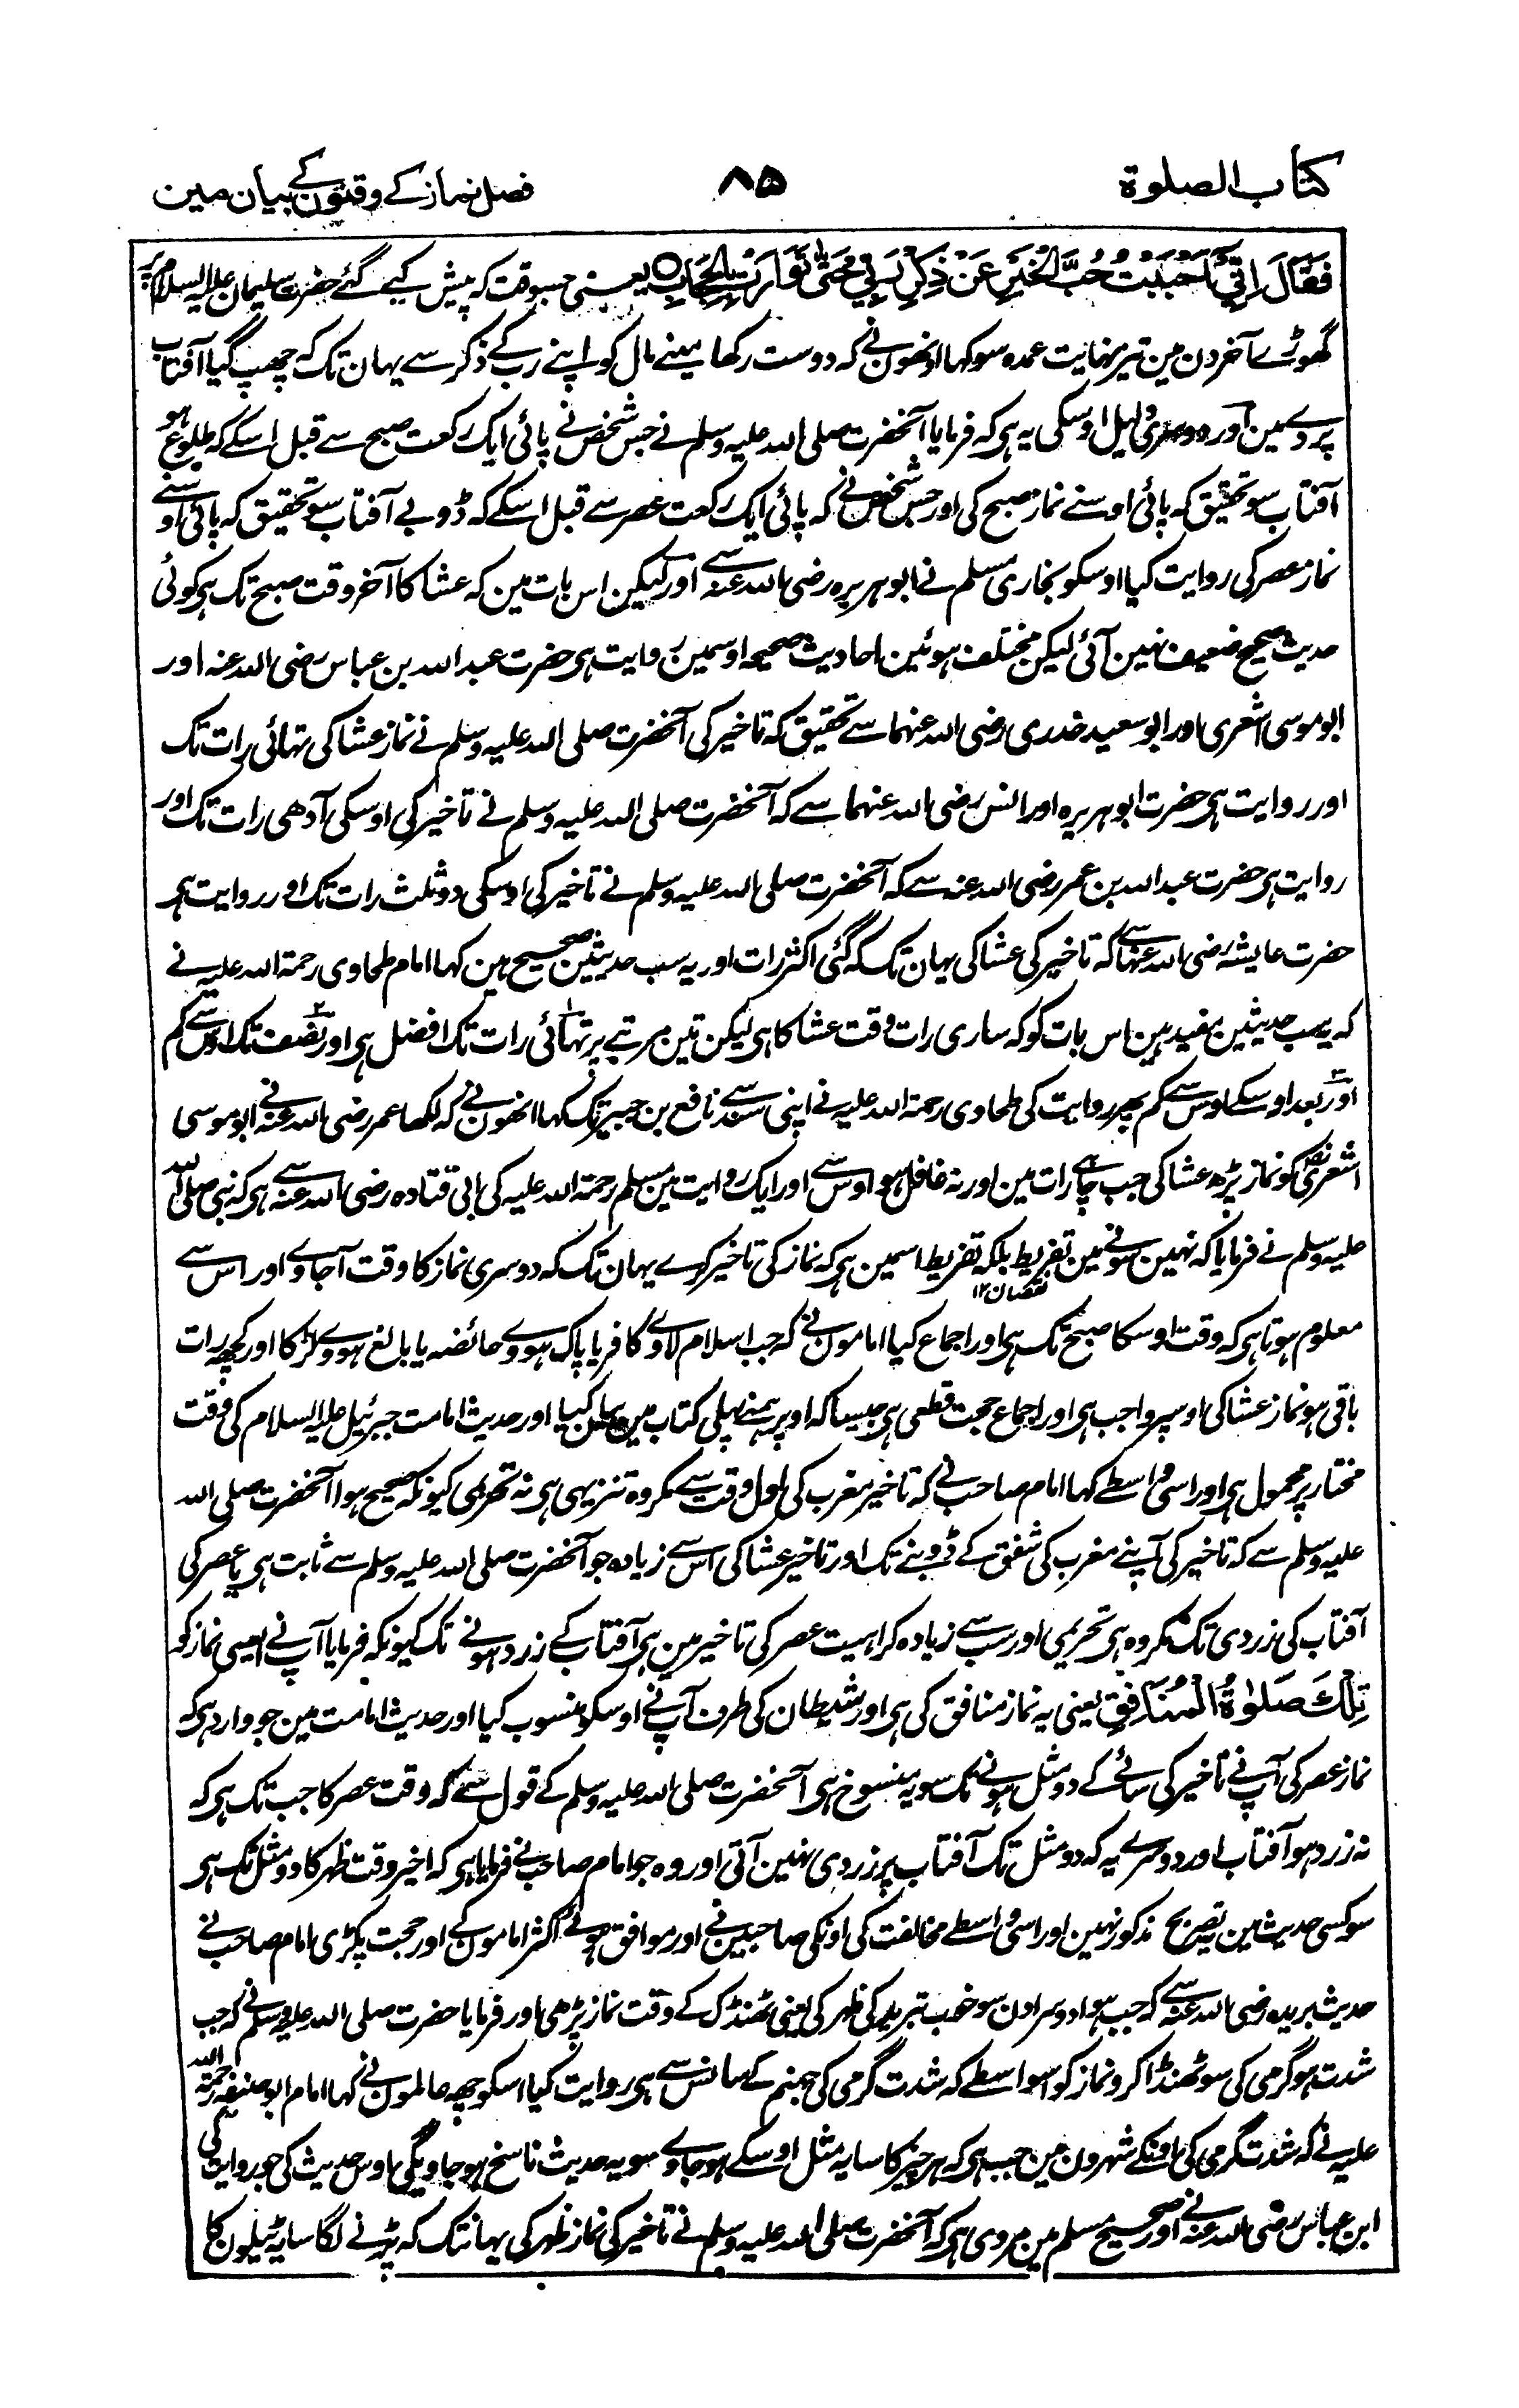 کتاب الصلوة
۸۵
فصل نماز کے وقتون کے بیان مین
فَقَالَ اِنِّيْ اَحْبَبْتُ حُبَّ الْخَيْرِ عَنْ ذِكْرِ رَبِّيْ حَتّٰى تَوَارَتْ بِالْحِجَابِ ○ یعنی جسوقت کہ پیش کیے گئے حضرت سلیمان علیہ السلام پر
گھوڑے آخر دن مین تیز نہایت عمدہ سو کہا اونھون نے کہ دوست رکھا مینے مال کو اپنے رب کے ذکر سے یہان تک کہ چھپ گیا آفتاب
پردے مین اور دوسری دلیل اوسکی یہ ہی کہ فرمایا آنحضرت صلی اللہ علیہ وسلم نے جس شخص نے پائی ایک رکعت صبح سے قبل اسکے کہ طلوع ہو
آفتاب سو تحقیق کہ پائی اوسنے نماز صبح کی اور جس شخص نے کہ پائی ایک رکعت عصر سے قبل اسکے کہ ڈوبے آفتاب سو تحقیق کہ پائی اوسنے
نماز عصر کی روایت کیا اوسکو بخاری مسلم نے ابو ہریرہ رضی اللہ عنہ سے اور لیکن اس بات مین کہ عشا کا آخر وقت صبح تک ہی کوئی
حدیث صحیح ضعیف نہین آئی لیکن مختلف ہوئین احادیث صحیحہ اوسمین روایت ہی حضرت عبد اللہ بن عباس رضی اللہ عنہ اور
ابو موسی اشعری اور ابو سعید خدری رضی اللہ عنہما سے تحقیق کہ تاخیر کی آنحضرت صلی اللہ علیہ وسلم نے نماز عشا کی تہائی رات تک
اور روایت ہی حضرت ابو ہریرہ اور انس رضی اللہ عنہما سے کہ آنحضرت صلی اللہ علیہ وسلم نے تاخیر کی اوسکی آدھی رات تک اور
روایت ہی حضرت عبد اللہ بن عمر رضی اللہ عنہ سے کہ آنحضرت صلی اللہ علیہ وسلم نے تاخیر کی اوسکی دو ثلث رات تک اور روایت ہی
حضرت عایشہ رضی اللہ عنہا سے کہ تاخیر کی عشا کی یہان تک کہ گئی اکثر رات اور یہ سب حدیثین صحیح ہین کہا امام طحاوی رحمۃ اللہ علیہ نے
کہ یہ سب حدیثین مفید ہین اس بات کو کہ ساری رات وقت عشا کا ہی لیکن تین مرتبے پر تہائی رات تک افضل ہی اور نصف تک اوس سے کم
اور بعد اوسکے اوس سے کم پھر روایت کی طحاوی رحمۃ اللہ علیہ نے اپنی سند سے نافع بن جبیر تک کہا انھون نے کہ لکھا عمر رضی اللہ عنہ نے ابو موسی
اشعری کو نماز پڑھ عشا کی جب چاہے رات مین اور نہ غافل ہو اوس سے اور ایک روایت مین مسلم رحمۃ اللہ علیہ کی ابی قتادہ رضی اللہ عنہ سے ہی کہ نبی صلی اللہ
علیہ وسلم نے فرمایا کہ نہین سونے مین تفریط بلکہ تفریط اسمین ہی کہ نماز کی تاخیر کرے یہان تک کہ دوسری نماز کا وقت آجاوے اور اس سے
نقصان ۱۲
معلوم ہوتا ہی کہ وقت اوسکا صبح تک ہی اور اجماع کیا امامون نے کہ جب اسلام لاوے کافر یا پاک ہووے حائضہ یا بالغ ہووے لڑکا اور کچھ رات
باقی ہو نماز عشا کی اوسپر واجب ہی اور اجماع حجت قطعی ہی جیسا کہ اوپر ہمنے پہلی کتاب مین بیان کیا اور حدیث امامت جبرئیل علیہ السلام کی وقت
مختار پر محمول ہی اور اسی واسطے کہا امام صاحب نے کہ تاخیر مغرب کی اول وقت سے مکروہ تنزیہی ہی نہ تحریمی کیونکہ صحیح ہوا آنحضرت صلی اللہ
علیہ وسلم سے کہ تاخیر کی آپنے مغرب کی شفق کے ڈوبنے تک اور تاخیر عشا کی اس سے زیادہ جو آنحضرت صلی اللہ علیہ وسلم سے ثابت ہی یا عصر کی
آفتاب کی زردی تک مکروہ ہی تحریمی اور سب سے زیادہ کراہیت عصر کی تاخیر مین ہی آفتاب کے زرد ہونے تک کیونکہ فرمایا آپ نے ایسی نماز کو
تِلْكَ صَلٰوةُ الْمُنَافِقِ یعنی یہ نماز منافق کی ہی اور شیطان کی طرف آپ نے اوسکو منسوب کیا اور حدیث امامت مین جو وارد ہی کہ
نماز عصر کی آپ نے تاخیر کی سائے کے دو مثل ہونے تک سو یہ منسوخ ہی آنحضرت صلی اللہ علیہ وسلم کے قول سے کہ وقت عصر کا جب تک ہی کہ
نہ زرد ہو آفتاب اور دوسرے یہ کہ دو مثل تک آفتاب پر زردی نہین آتی اور وہ جو امام صاحب نے فرمایا ہی کہ اخیر وقت ظہر کا دو مثل تک ہی
سو کسی حدیث مین بتصریح مذکور نہین اور اسی واسطے مخالفت کی اونکی صاحبین نے اور موافق ہوئے اکثر امامون کے اور حجت پکڑی امام صاحب نے
حدیث بریدہ رضی اللہ عنہ سے کہ جب ہوا دوسرا دن سو خوب تبرید کی ظہر کی یعنی ٹھنڈک کے وقت نماز پڑھی اور فرمایا حضرت صلی اللہ علیہ وسلم نے کہ جب
شدت ہو گرمی کی سو ٹھنڈا کرو نماز کو اسواسطے کہ شدت گرمی کی جہنم کے سانس سے ہی روایت کیا اسکو چھ عالمون نے کہا امام ابو حنیفہ رحمۃ اللہ
علیہ نے کہ شدت گرمی کی اونکے شہرون مین جب ہی کہ ہر چیز کا سایہ مثل اوسکے ہوجاوے سو یہ حدیث ناسخ ہوجاویگی اوس حدیث کی جو روایت کی
ابن عباس رضی اللہ عنہ نے اور صحیح مسلم مین مروی ہی کہ آنحضرت صلی اللہ علیہ وسلم نے تاخیر کی نماز ظہر کی یہانتک کہ پڑنے لگا سایہ ٹیلون کا